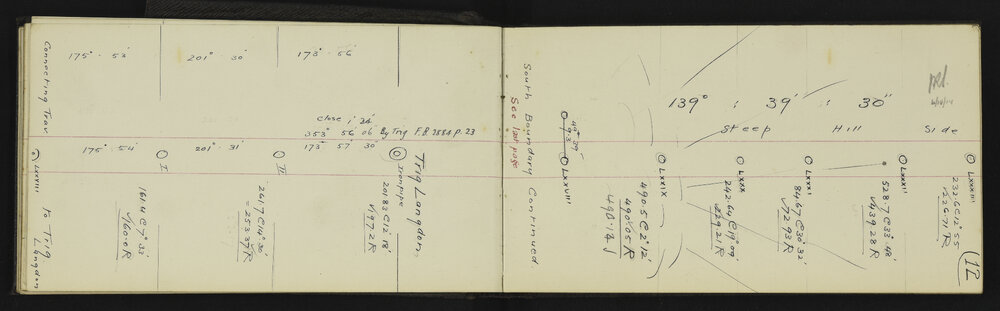 Connecting Trav.
LXXVIII
to Trig
Langdon
175° 52'
201° 30'
173° 56'
close 1' 34"
353° 56' 06 By Trig F.B. 2584 p. 23
175° 54'
201° 31'
173° 57' 30"
I
II
Iron pipe
Trig Langdon
161.4 C 7° 32'
√160.0 R
261.7 C 14° 30'
= 253.37 R
201.83 C 12° 18'
√197.2 R
South Boundary Continued.
See last page
LXXVIII
LXXIX
LXXX
LXXXI
LXXXII
LXXXIII
139° : 39' : 30"
Steep Hill Side
490.5 C 2° 12'
490.05 R
242.64 C 19° 09'
√229.21 R
84.67 C 30° 32'
√72.93 R
528.7 C 33° 48'
√439.28 R
232.6 C 12° 55'
√226.71 R
12